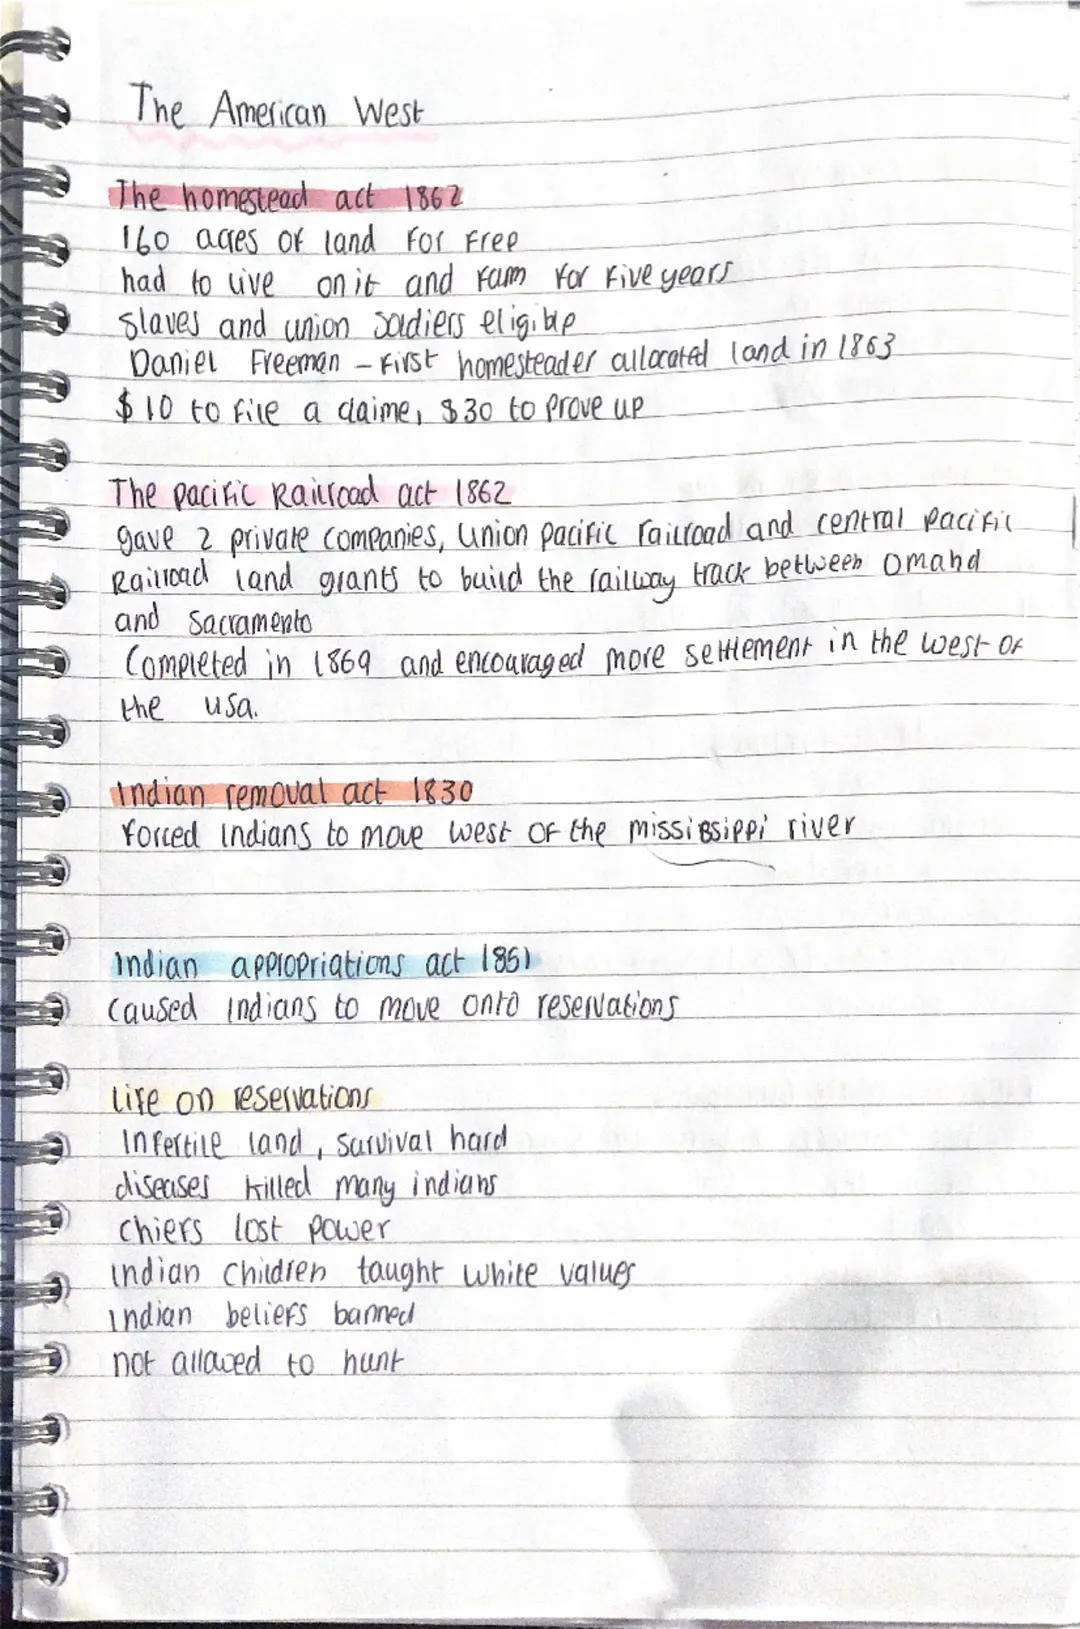 The American West
The homestead act 1862
160 acres of land for free
had to live on it and farm for five years
Slaves and union soldiers eligible
Daniel Freeman - first homesteader allocated land in 1863
$10 to file a claime, $30 to prove up
The pacific Railroad act 1862
gave 2 private companies, Union pacific railroad and central pacific
Railroad land grants to build the railway track between Omaha
and Sacramento
Completed in 1869 and encouraged more settlement in the west of
the usa.
Indian removal act 1830
forced Indians to move west of the mississippi river
Indian appropriations act 1851
Caused Indians to move onto reservations
Life on reservations
Infertile land, survival hard
diseases killed many indians
chiefs lost power
indian children taught white values
indian beliefs banned
not allowed to hunt